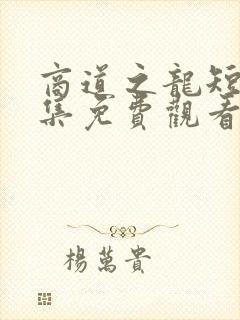 商道之龍短
集免費觀看
楊萬貴